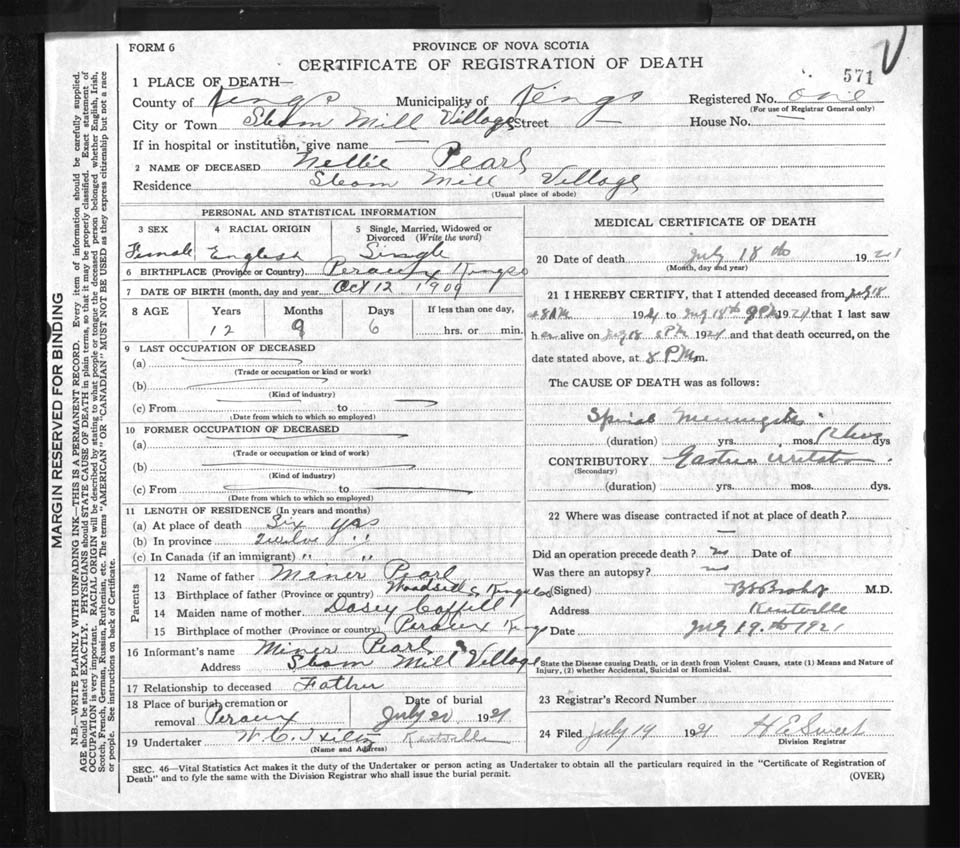 FORM 6
PROVINCE OF NOVA SCOTIA
CERTIFICATE OF REGISTRATION OF DEATH
571
1 PLACE OF DEATH—
County of Kings Municipality of Kings Registered No. one
(For use of Registrar General only)
City or Town Steam Mill Village Street — House No.
If in hospital or institution, give name —
2 NAME OF DECEASED Nellie Pearl
Residence Steam Mill Village
(Usual place of abode)
PERSONAL AND STATISTICAL INFORMATION
3 SEX 4 RACIAL ORIGIN 5 Single, Married, Widowed or Divorced (Write the word)
Female English Single
6 BIRTHPLACE (Province or Country) Peraux Kings
7 DATE OF BIRTH (month, day and year) Oct 12 1909
8 AGE Years Months Days If less than one day,
12 9 6 hrs. or min.
9 LAST OCCUPATION OF DECEASED
(a)
(Trade or occupation or kind or work)
(b)
(Kind of industry)
(c) From to
(Date from which to which so employed)
10 FORMER OCCUPATION OF DECEASED
(a)
(Trade or occupation or kind of work)
(b)
(Kind of industry)
(c) From to
(Date from which to which so employed)
11 LENGTH OF RESIDENCE (In years and months)
(a) At place of death Six yrs
(b) In province Twelve " "
(c) In Canada (if an immigrant) " "
Parents
12 Name of father Miner Pearl
13 Birthplace of father (Province or country) Woodside Kings Co
14 Maiden name of mother Dasey Coffill
15 Birthplace of mother (Province or country) Peraux Kings
16 Informant's name Miner Pearl
Address Steam Mill Village
17 Relationship to deceased Father
18 Place of burial, cremation or removal Peraux
Date of burial July 20 1921
19 Undertaker W. C. Kentville
(Name and Address)
MEDICAL CERTIFICATE OF DEATH
20 Date of death July 18th 1921
(Month, day and year)
21 I HEREBY CERTIFY, that I attended deceased from July 18
1921 to July 18th 8 PM 1921 that I last saw
her alive on July 18 8 PM 1921 and that death occurred, on the
date stated above, at 8 PM m.
The CAUSE OF DEATH was as follows:
Spinal Meningitis
(duration) yrs. mos. dys
CONTRIBUTORY Gastric irritation
(Secondary)
(duration) yrs. mos. dys.
22 Where was disease contracted if not at place of death?
—
Did an operation precede death? no Date of
Was there an autopsy? no
(Signed) M.D.
Address Kentville
Date July 19th 1921
State the Disease causing Death, or in death from Violent Causes, state (1) Means and Nature of Injury, (2) whether Accidental, Suicidal or Homicidal.
23 Registrar's Record Number
24 Filed July 19 1921 H E Sweet
Division Registrar
SEC. 46—Vital Statistics Act makes it the duty of the Undertaker or person acting as Undertaker to obtain all the particulars required in the "Certificate of Registration of Death" and to fyle the same with the Division Registrar who shall issue the burial permit.
(OVER)
MARGIN RESERVED FOR BINDING
N.B.—WRITE PLAINLY WITH UNFADING INK—THIS IS A PERMANENT RECORD. Every item of information should be carefully supplied.
AGE should be stated EXACTLY. PHYSICIANS should STATE CAUSE OF DEATH in plain terms, so that it may be properly classified. Exact statement of
OCCUPATION is very important. RACIAL ORIGIN will be described by stating to what people or tongue the deceased person belonged whether English, Irish,
Scotch, French, German, Russian, Ruthenian, etc. The terms "AMERICAN" OR "CANADIAN" MUST NOT BE USED as they express citizenship but not a race
or people. See instructions on back of Certificate.